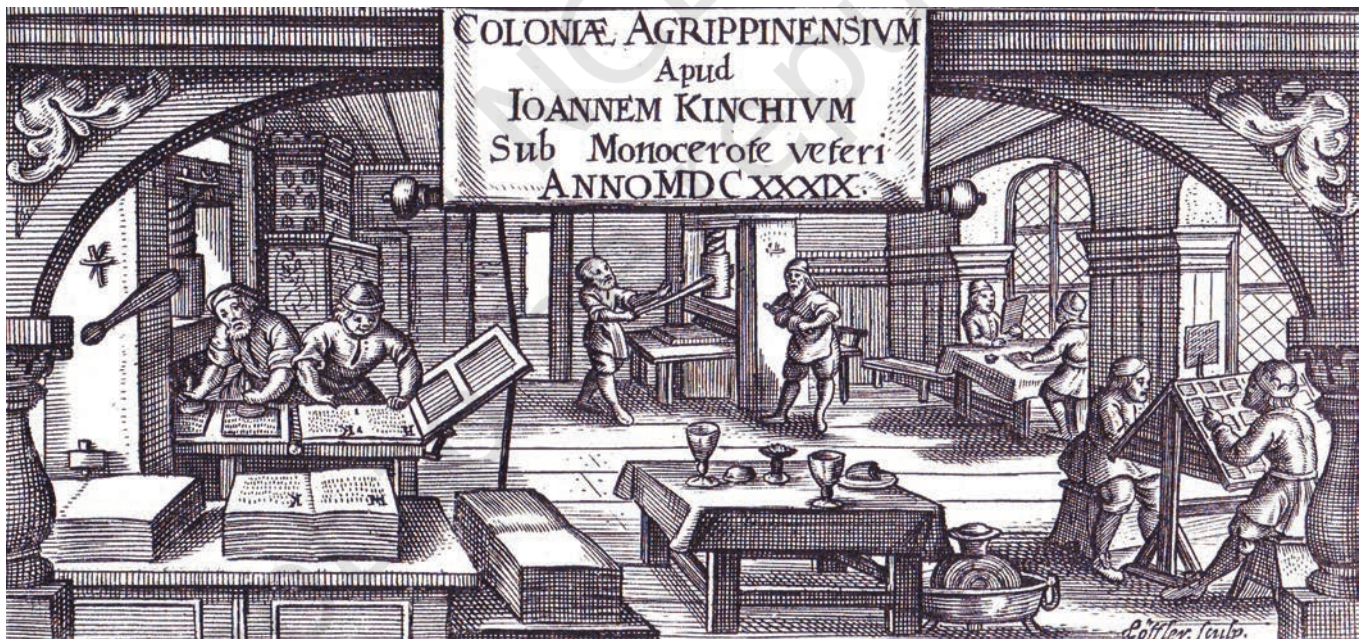 COLONIÆ AGRIPPINENSIVM
Apud
IOANNEM KINCHIVM
Sub Monocerote veteri
ANNO MDCXXXIX.